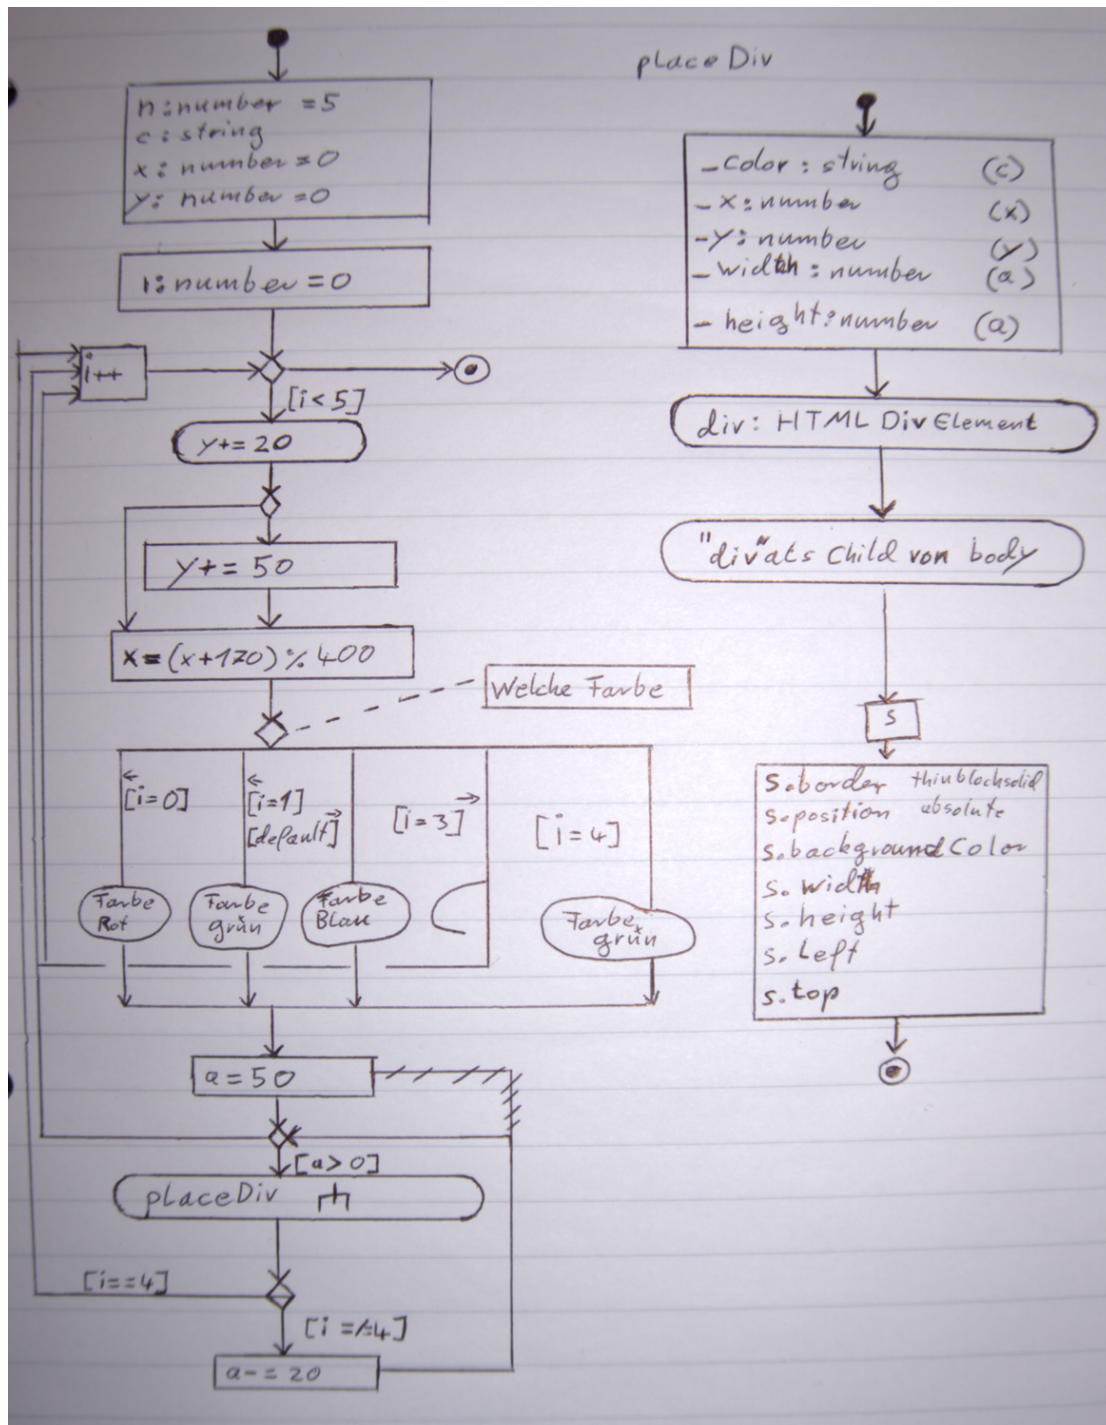 n:number = 5
c: string
x: number = 0
y: number = 0
i:number = 0
i++
[i<5]
y+=20
y+= 50
x=(x+170)%400
Welche Farbe
[i=0]
[i=1]
[default]
[i=3]
[i=4]
Farbe
Rot
Farbe
grün
Farbe
Blau
Farbe
grün
a=50
[a>0]
placeDiv
[i==4]
[i=/=4]
a-=20
placeDiv
_color: string (c)
-x:number (x)
-y: number (y)
-width: number (a)
- height:number (a)
div: HTML DivElement
"div"als Child von body
s
s.border thinblacksolid
s.position absolute
s.backgroundColor
s. width
s. height
s. Left
s.top